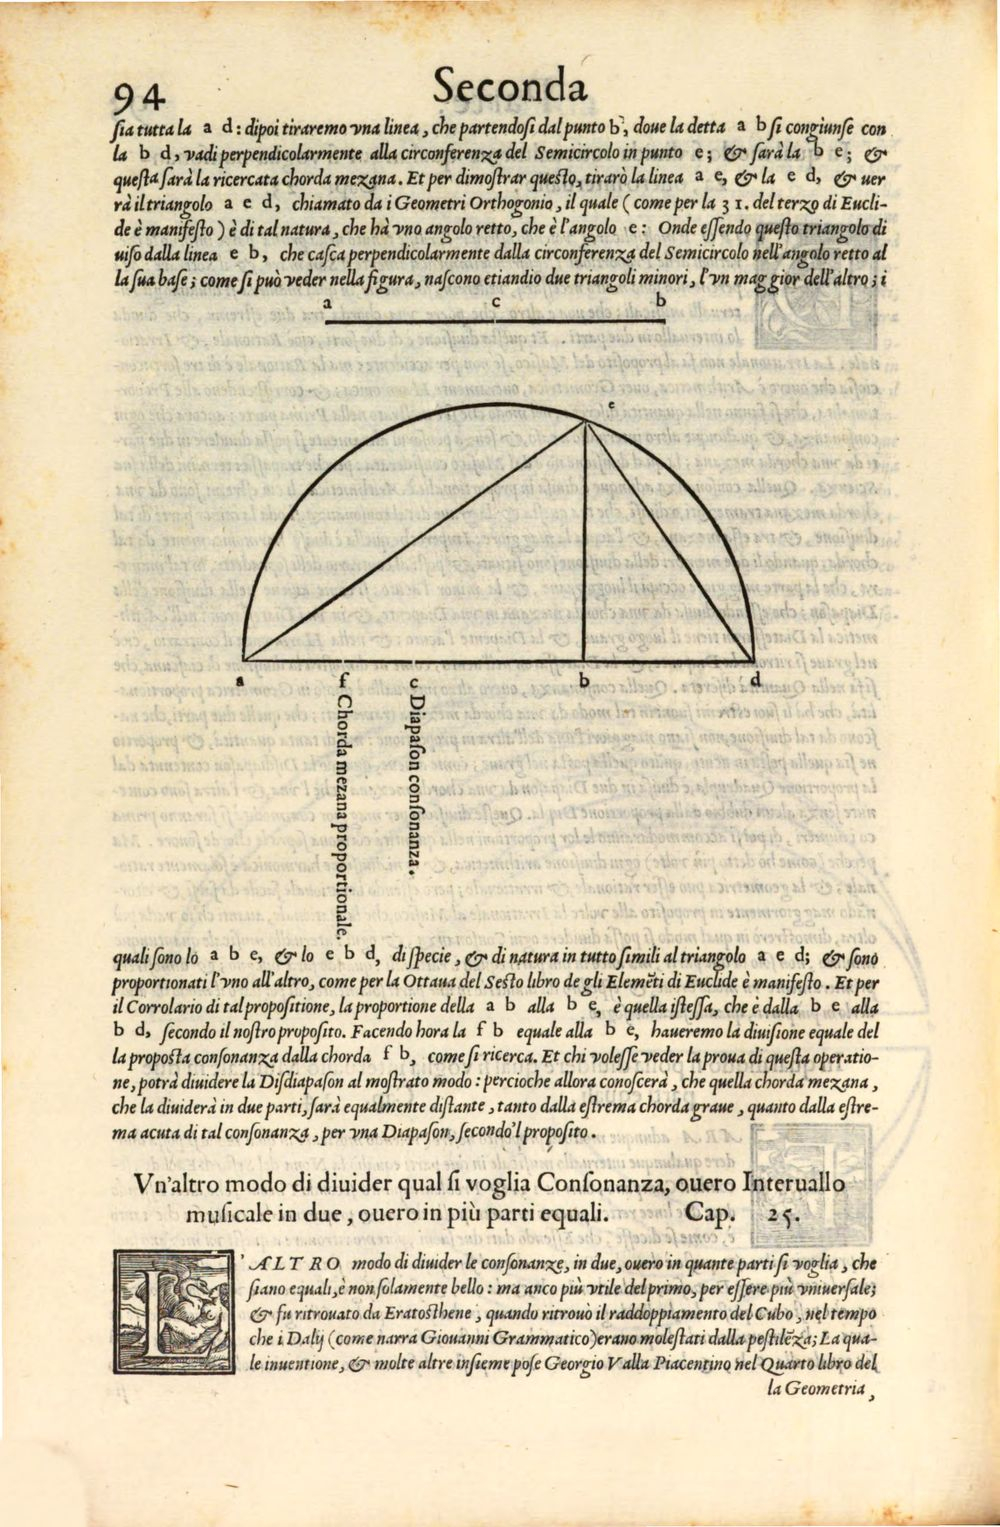 94
Seconda
ſia tutta la a d: dipoi tiraremo vna linea, che partendoſi dal punto b, doue la detta a b ſi congiunſe con
la b d, vadi perpendicolarmente alla circonferenza del Semicircolo in punto e; & ſarà la b e; &
queſta ſarà la ricercata chorda mezana. Et per dimoſtrar queſto, tirarò la linea a e, & la e d, & uer
rà il triangolo a e d, chiamato da i Geometri Orthogonio, il quale (come per la 31. del terzo di Eucli-
de è manifeſto) è di tal natura, che hà vno angolo retto, che è l'angolo e: Onde eſſendo queſto triangolo di
uiſo dalla linea e b, che caſca perpendicolarmente dalla circonferenza del Semicircolo nell'angolo retto al
la ſua baſe; come ſi può veder nella figura, naſcono etiandio due triangoli minori, l'vn maggior dell'altro; i
a c b
e
a f c b d
Chorda mezana proportionale.
Diapaſon conſonanza.
quali ſono lo a b e, & lo e b d, di ſpecie, & di natura in tutto ſimili al triangolo a e d; & ſono
proportionati l'vno all'altro, come per la Ottaua del Seſto libro de gli Elemẽti di Euclide è manifeſto. Et per
il Corrolario di tal propoſitione, la proportione della a b alla b e, è quella iſteſſa, che è dalla b e alla
b d, ſecondo il noſtro propoſito. Facendo hora la f b equale alla b e, haueremo la diuiſione equale del
la propoſta conſonanza dalla chorda f b, come ſi ricerca. Et chi voleſſe veder la proua di queſta operatio-
ne, potrà diuidere la Diſdiapaſon al moſtrato modo: percioche allora conoſcerà, che quella chorda mezana,
che la diuiderà in due parti, ſarà equalmente diſtante, tanto dalla eſtrema chorda graue, quanto dalla eſtre-
ma acuta di tal conſonanza, per vna Diapaſon, ſecondo'l propoſito.
Vn'altro modo di diuider qual ſi voglia Conſonanza, ouero Interuallo
muſicale in due, ouero in più parti equali. Cap. 25.
L'ALTRO modo di diuider le conſonanze, in due, ouero in quante parti ſi voglia, che
ſiano equali, è non ſolamente bello: ma anco più vtile del primo, per eſſere più vniuerſale;
& fu ritrouato da Eratoſthene, quando ritrouò il raddoppiamento del Cubo, nel tempo
che i Dalij (come narra Giouanni Grammatico) erano moleſtati dalla peſtilẽza; La qua-
le inuentione, & molte altre inſieme poſe Georgio Valla Piacentino nel Quarto libro del
la Geometria,